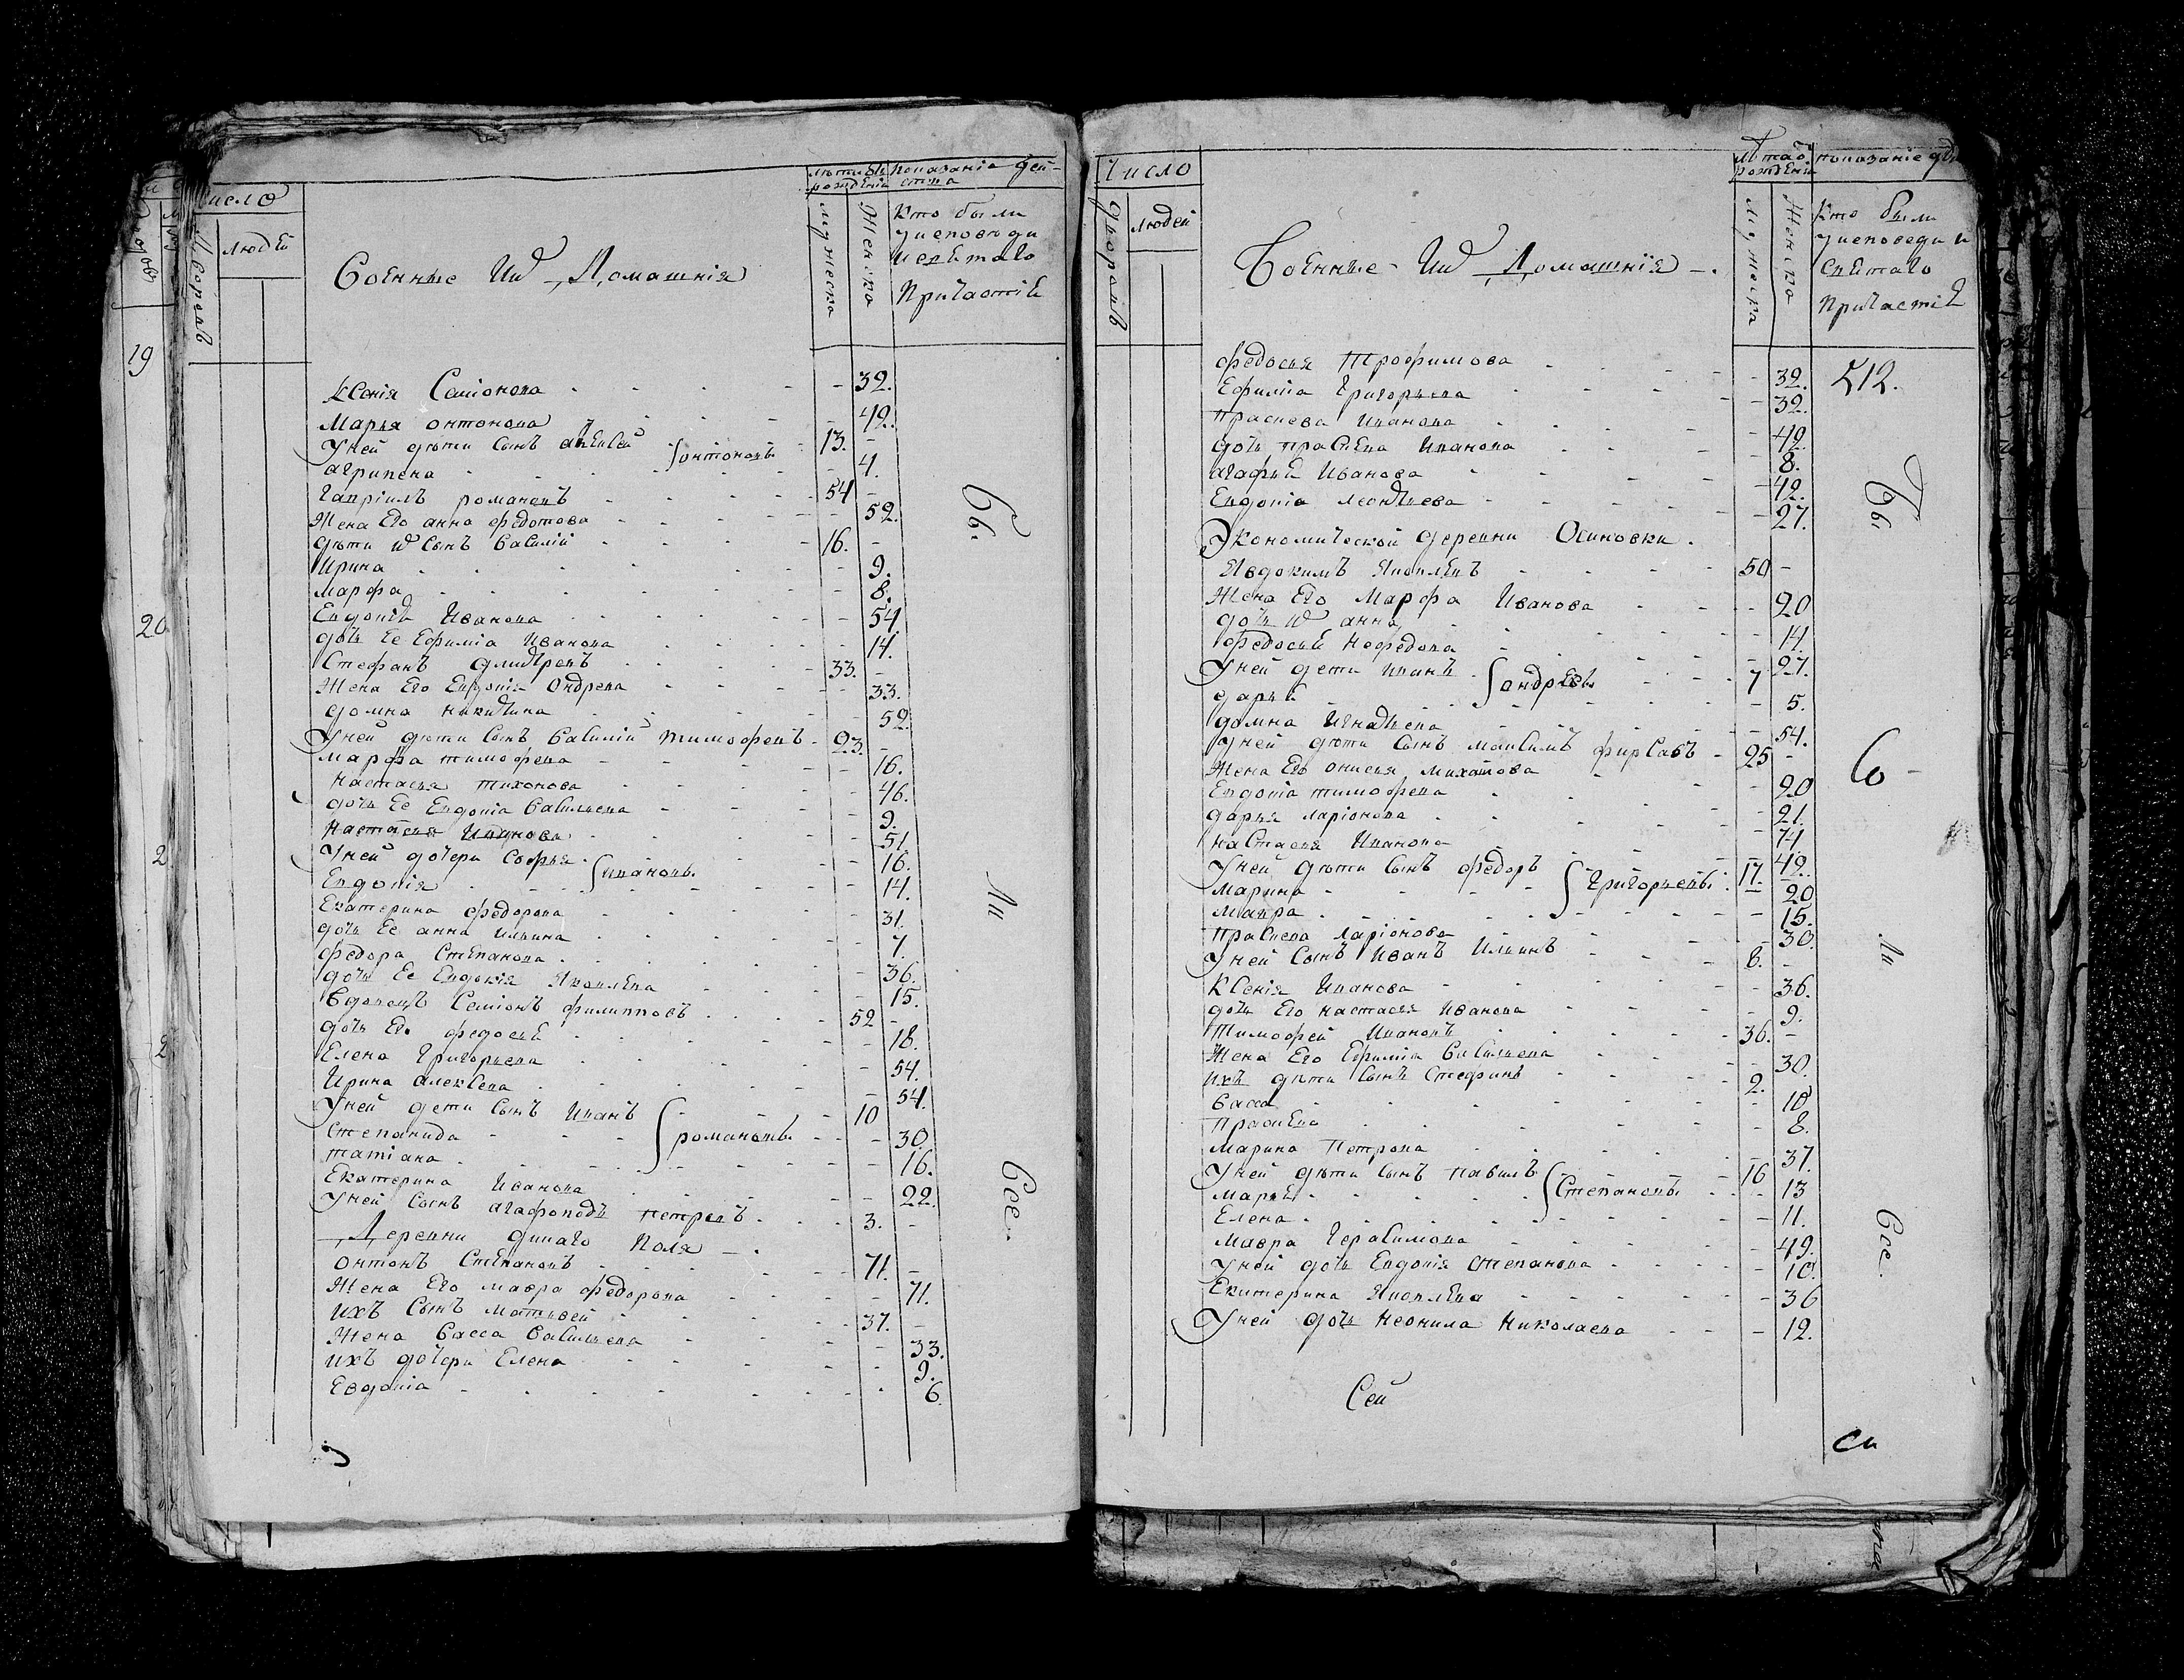 Число
людей
Дворовъ
Военные И ихъ Домашнія
лѣтъ отъ рожденія
мужеска
Женска
Показаніе дей-
ства
Кто были
у исповѣди
и святаго
Причастія
19
20
2
2
Ксенія Семіонова 32.
Марья онтонова 42.
У ней дѣти сынъ алексей 13.
агрипена } онтоновы 4.
Гавріилъ романовъ 54
Жена Его анна федотова 52.
дѣти их сынъ Василій 16.
Ирина 9.
Марфа 8.
Евдокія Иванова 54.
дочь Ее Ефимія Иванова 14.
Стефанъ дмитревъ 33.
Жена Его Евдокія Ондрева 33.
домна никитина 52.
У ней дѣти сынъ Василій тимофеевъ 23.
марфа тимофева 16.
настасья тихонова 46.
дочь Ее Евдокія Васильева 9.
Настасья Иванова 51.
У ней дочери Софья 16.
Евдокія } ивановы 14.
Екатерина федорова 31.
дочь Ее анна ильина 7.
федора Степанова 36.
дочь Ее Евдокія Яковлева 15.
Вдовецъ Семіонъ филипповъ 52
дочь Его федосья 18.
Елена Григорьева 54.
Ирина алексева 54.
У ней дети сынъ Иванъ 10
Степанида } романовы 30.
татіана 16.
Екатерина Иванова 22.
У ней сынъ агафоподъ петровъ 3.
Деревни Поля
онтонъ Степановъ 71.
Жена Его мавра федорова 71.
ихъ сынъ матвей 37.
Жена Васса Васильева 33.
ихъ дочери Елена 9.
Евдокія 6.
Бы
ли
Все
Число
людей
Дворовъ
Военные И ихъ Домашнія
лѣта отъ рожденія
мужеска
Женска
показаніе
Кто были
у исповеди и
святаго
Причастія
федосья Трофимова 32.
Ефимія Григорьева 32.
праскева Иванова 42.
дочь праскева Иванова 8.
агафья Иванова 42.
Евдокія леонтьева 27.
Экономической деревни Осиновки
Явдокимъ Яковлевъ 50
Жена Его Марфа Иванова 20
дочь их анна 14.
федосья Нефедова 27.
У ней дети иванъ 7
дарья } ондреевы 5.
домна Игнатьева 54.
у ней дѣти сынъ максимъ фирсавъ 25
Жена Его онисья михайлова 20
Евдокія тимофева 21.
дарья ларіонова 74
настасья Иванова 42.
У ней дѣти сынъ федоръ 17.
марина } Григорьевы 20
мавра 15.
праскева ларіонова 30.
У ней сынъ Иванъ Ильинъ 8.
Ксенія Иванова 36.
дочь Его настасья Иванова 9.
Тимофей Ивановъ 36.
Жена Его Ефимія Васильева 30.
ихъ дѣти сынъ Стефанъ 2.
Васса 10
Праскева 8.
марина Петрова 37.
У ней дѣти сынъ павилъ 16
марья } Степановы 13
Елена 11.
мавра Герасимова 49.
У ней дочь Евдокія степанова 10.
Екатерина Яковлева 36
У ней дочь Неонила Николаева 12.
512.
Бы
Со
ли
Все
Сей
Си